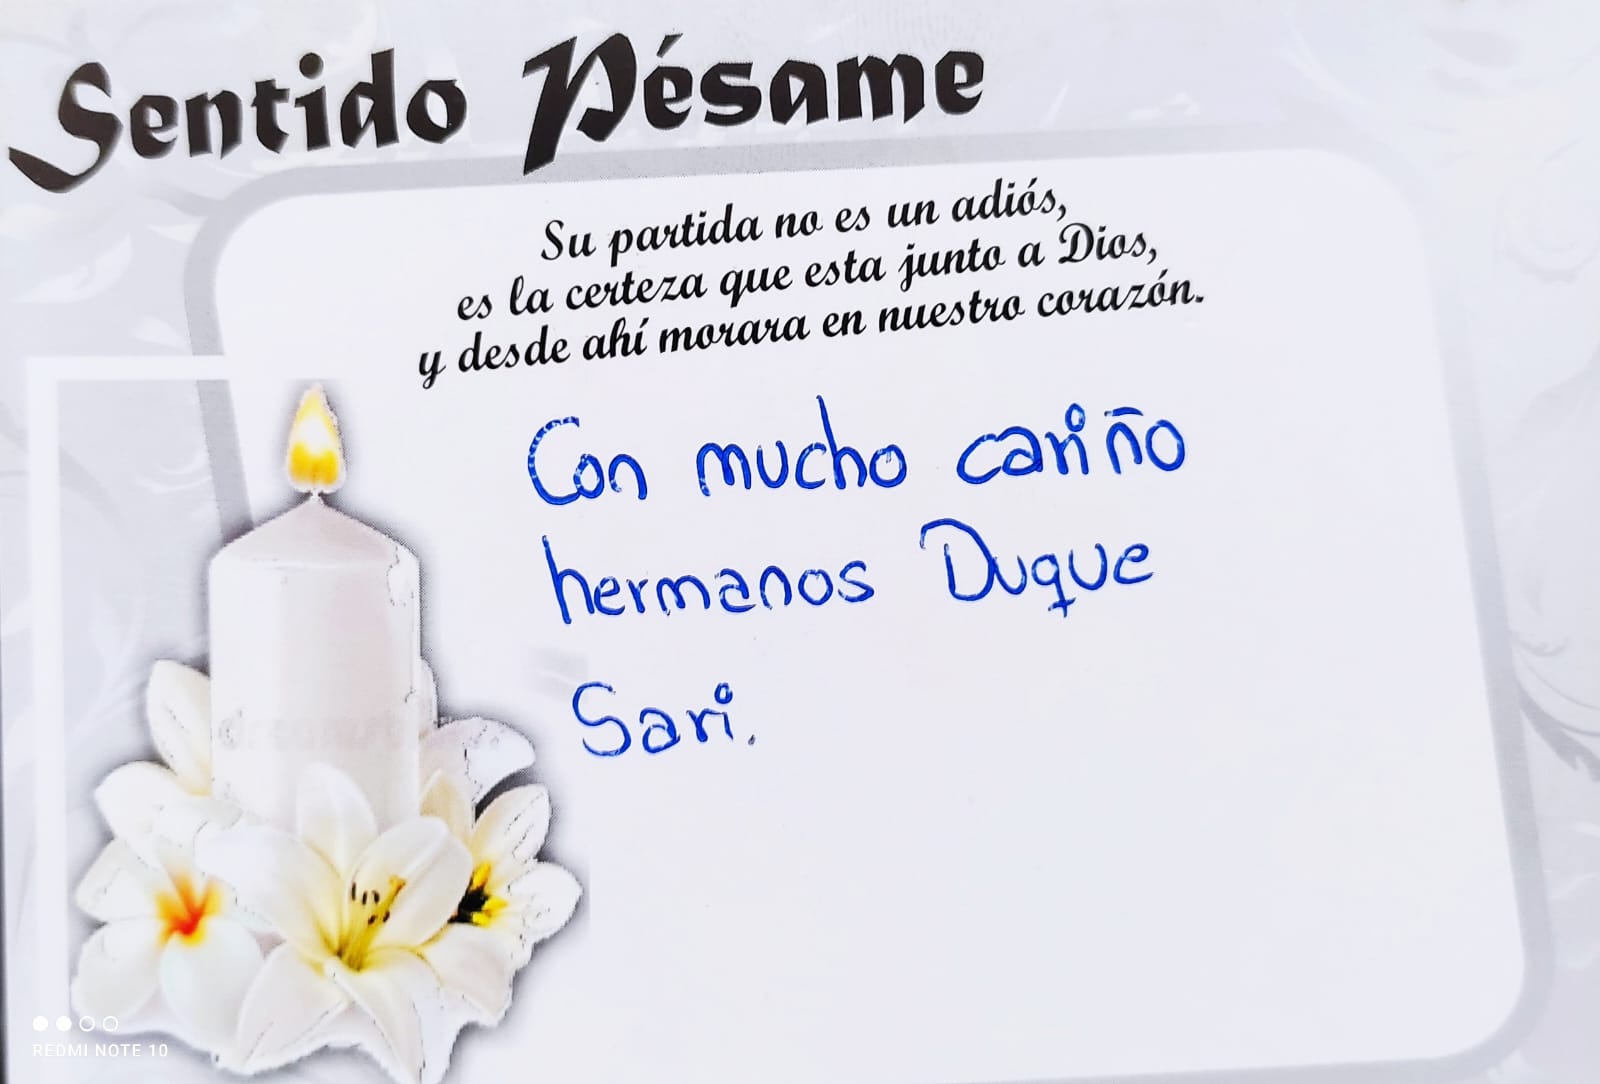 Sentido Pésame
Su partida no es un adiós,
es la certeza que esta junto a Dios,
y desde ahí morara en nuestro corazón.
Con mucho cariño
hermanos Duque
Sari.
REDMI NOTE 10